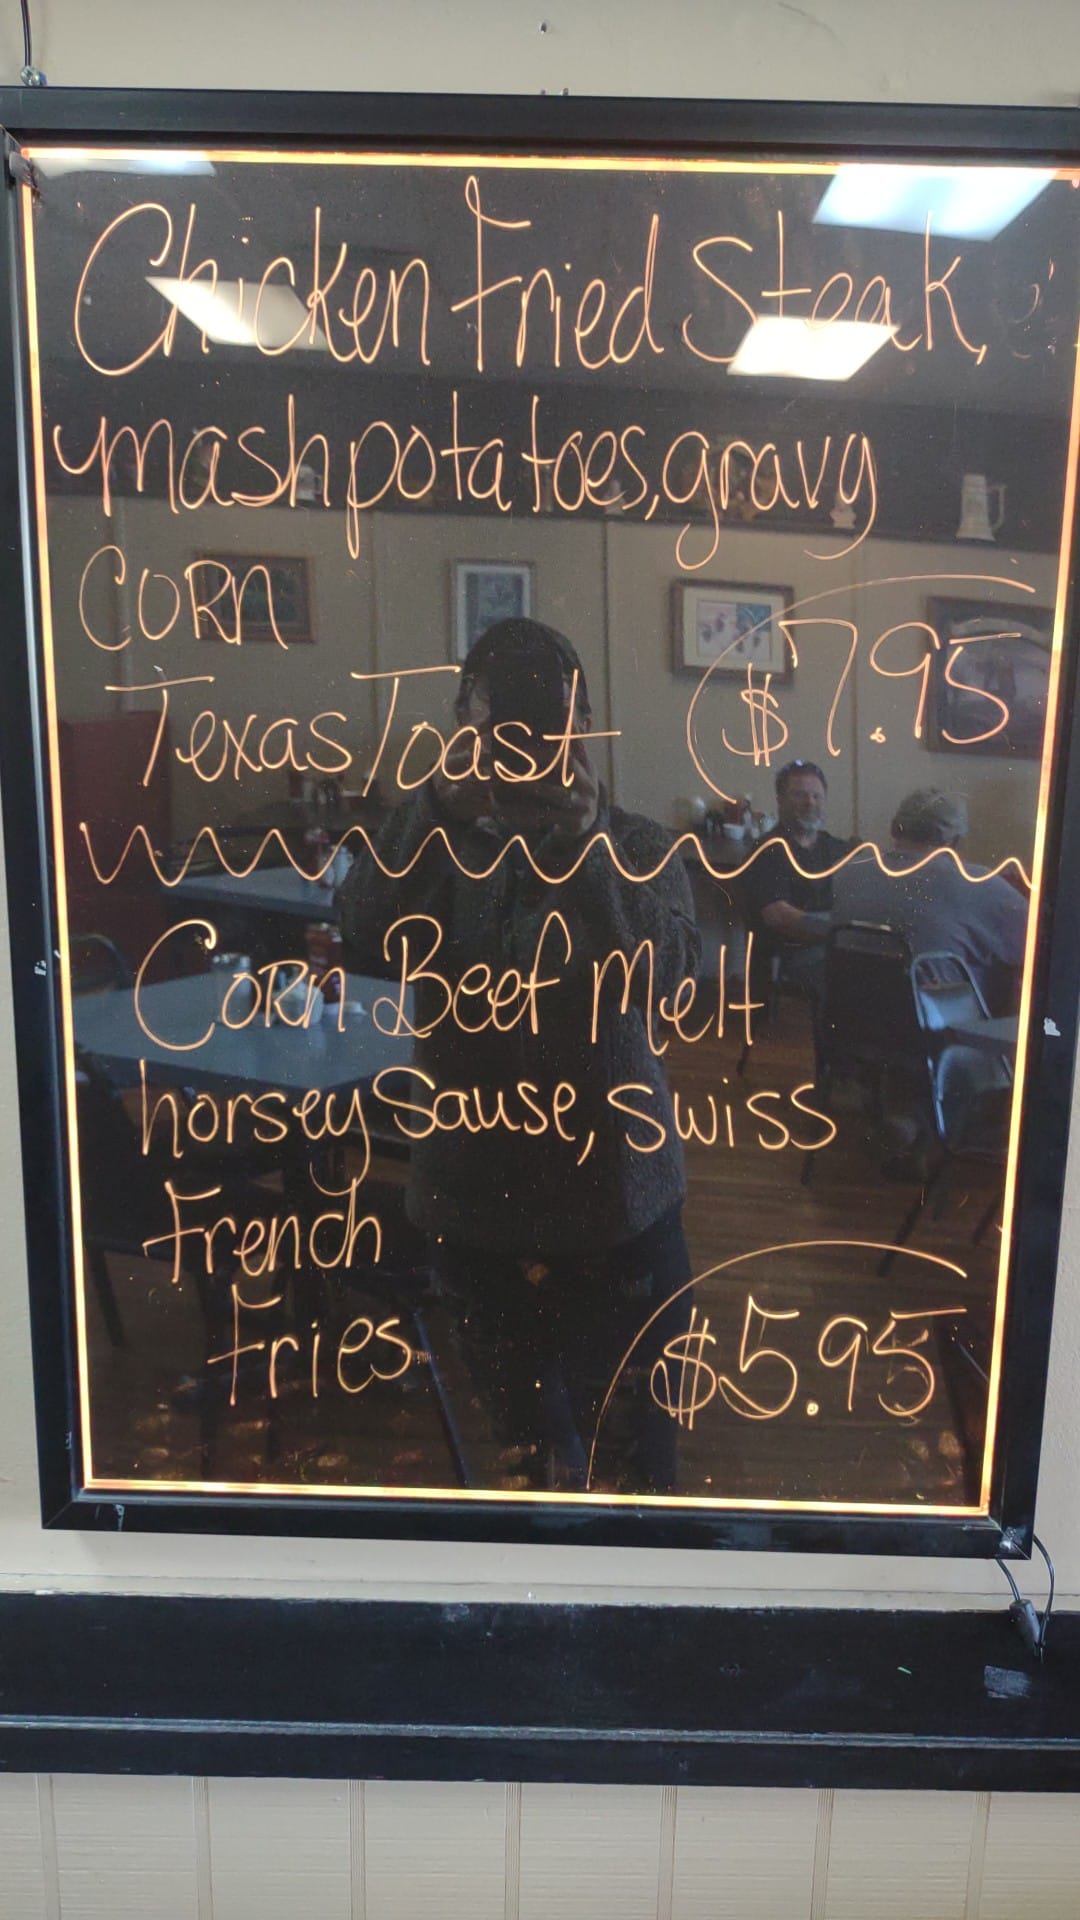 Chicken Fried Steak,
mash potatoes, gravy
CORN
Texas Toast $7.95
CORN Beef Melt
horsey Sause, swiss
French
Fries $5.95